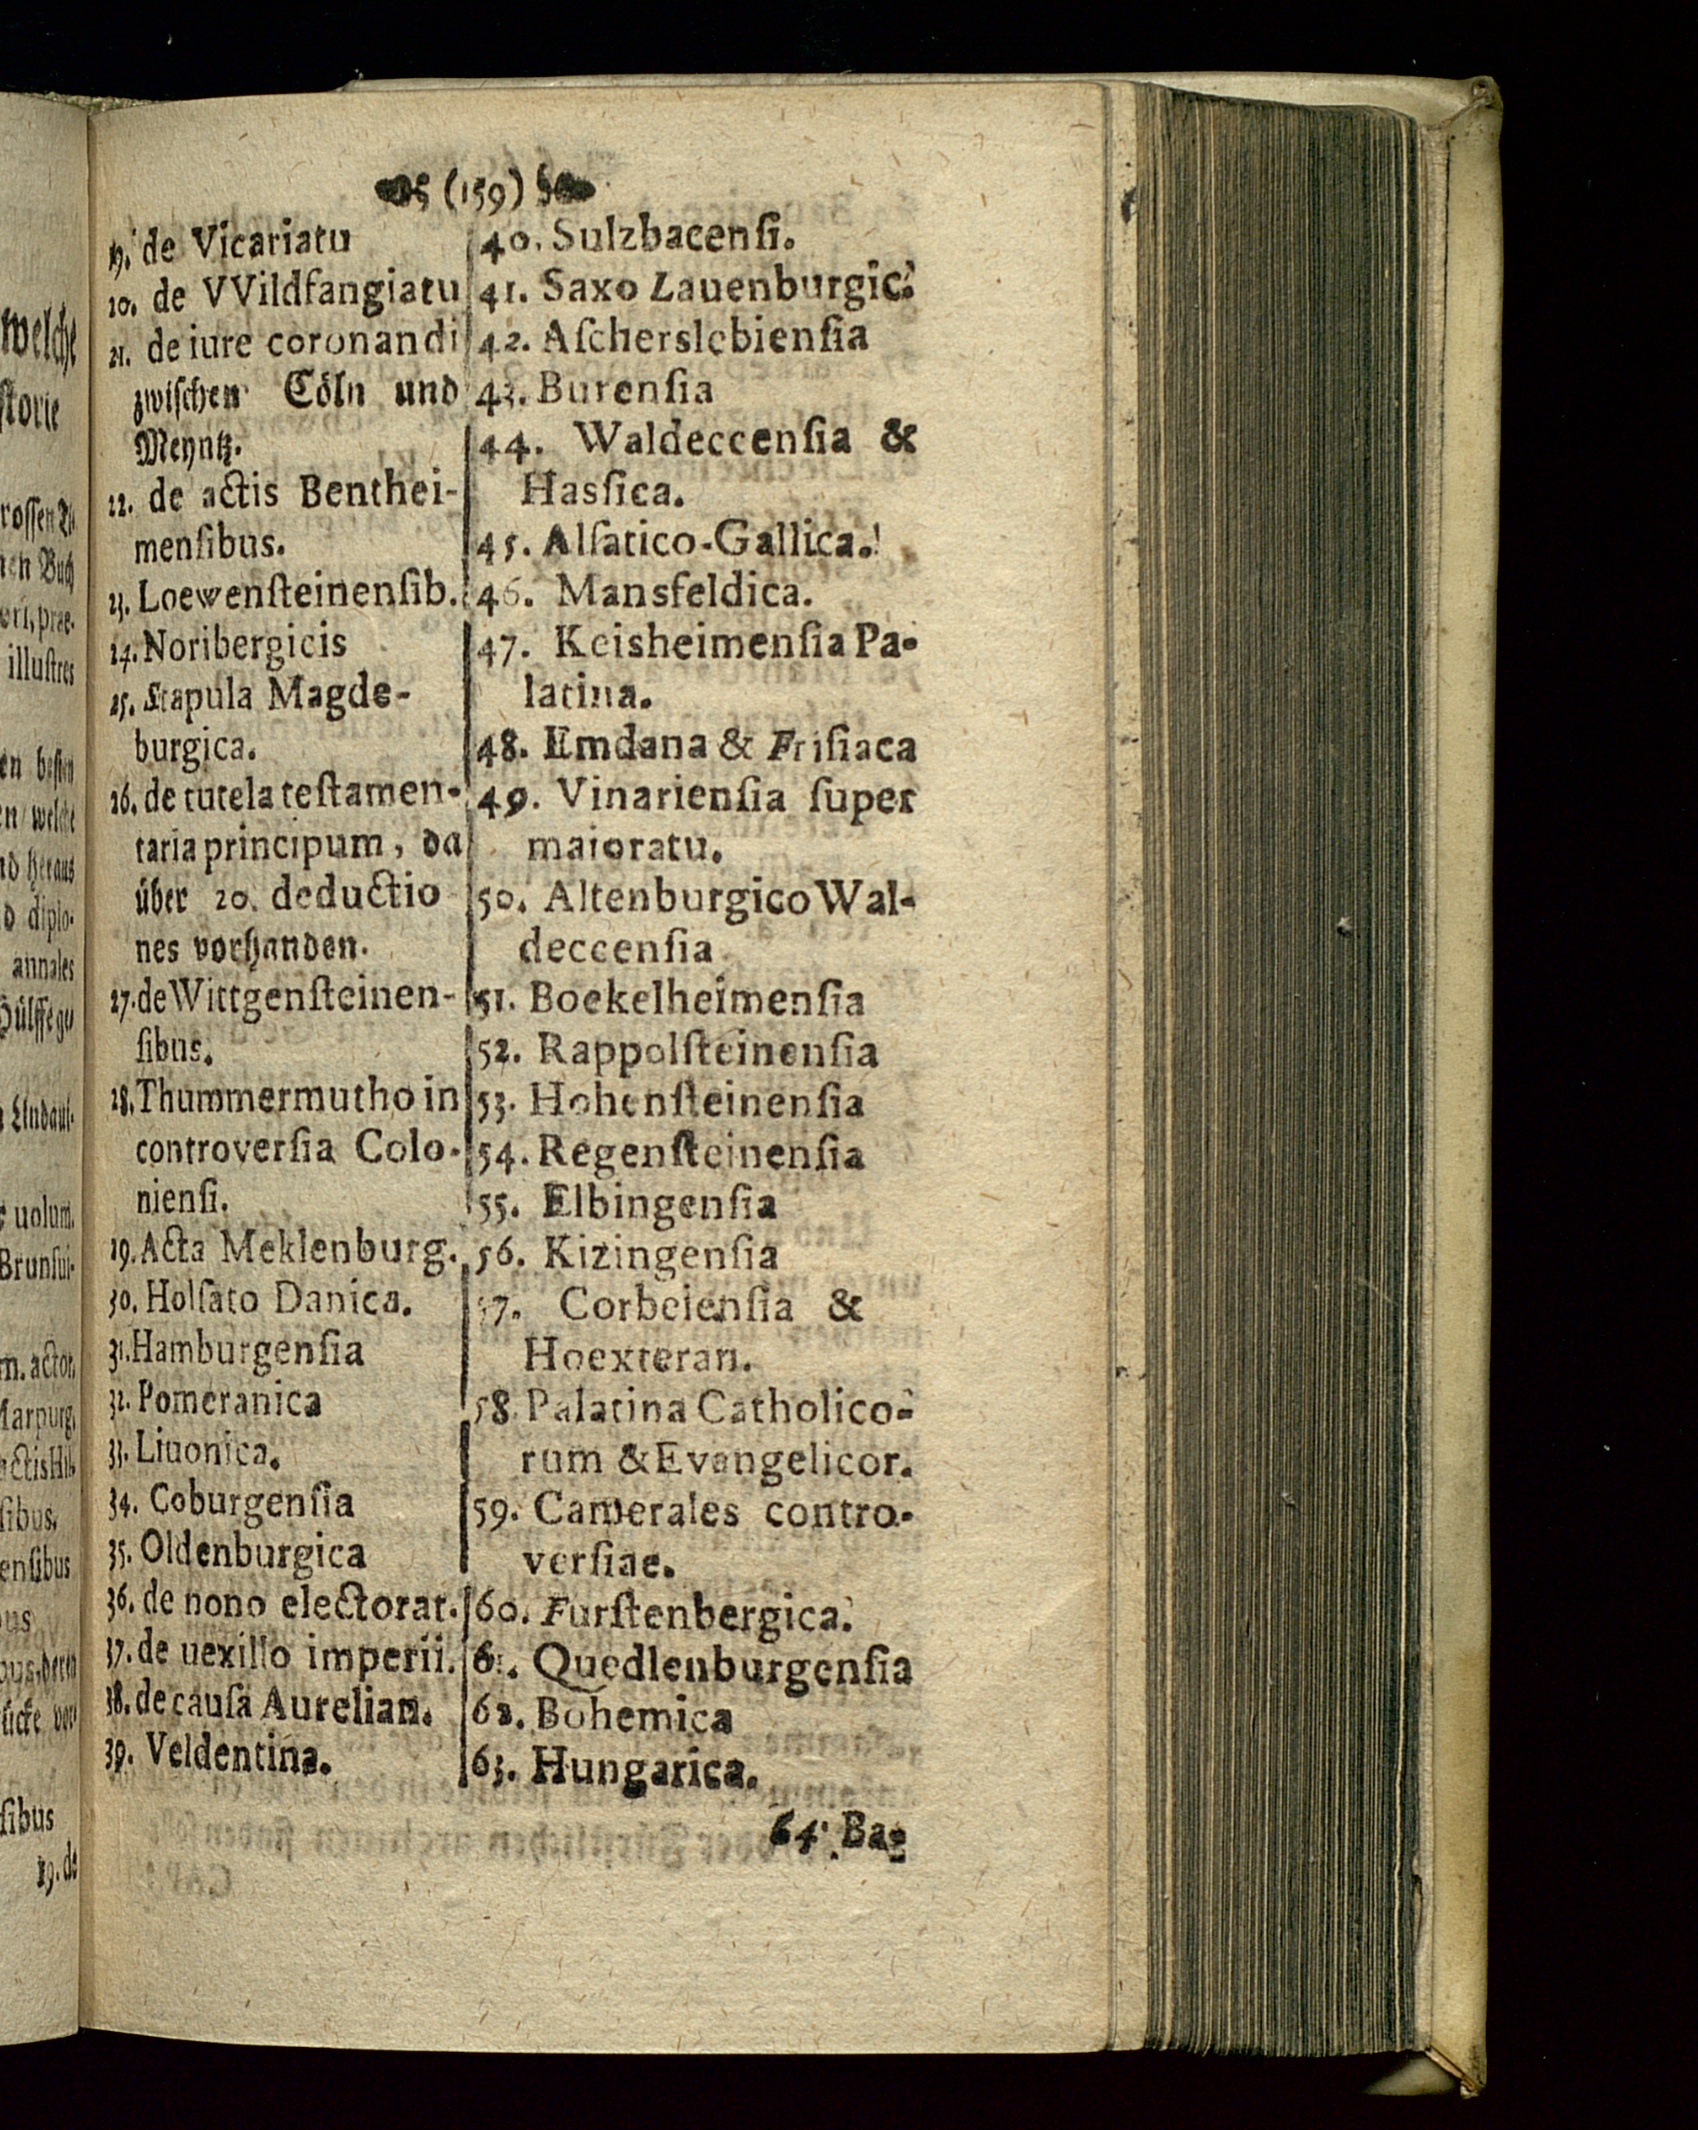 (159)
19. de Vicariatu
20. de VVildfangiatu
21. de iure coronandi
zwischen Cöln und
Meyntz.
22. de actis Benthei-
menſibus.
23. Loewenſteinenſib.
24. Noribergicis
25. Stapula Magde-
burgica.
26. de tutela teſtamen-
taria principum, da
über 20. deductio
nes vorhanden.
27. de Wittgenſteinen-
ſibus.
28. Thummermutho in
controverſia Colo-
nienſi.
29. Acta Meklenburg.
30. Holſato Danica.
31. Hamburgenſia
32. Pomeranica
33. Liuonica.
34. Coburgenſia
35. Oldenburgica
36. de nono electorat.
37. de uexillo imperii.
38. de cauſa Aurelian.
39. Veldentina.
40. Sulzbacenſi.
41. Saxo Lauenburgic.
42. Aſcherslebienſia
43. Burenſia
44. Waldeccenſia &
Hasſica.
45. Alſatico-Gallica.
46. Mansfeldica.
47. Keisheimenſia Pa-
latina.
48. Emdana & Friſiaca
49. Vinarienſia ſuper
maioratu.
50. Altenburgico Wal-
deccenſia
51. Boekelheimenſia
52. Rappolſteinenſia
53. Hohenſteinenſia
54. Regenſteinenſia
55. Elbingenſia
56. Kizingenſia
57. Corbeienſia &
Hoexteran.
58. Palatina Catholico-
rum & Evangelicor.
59. Camerales contro-
verſiae.
60. Furſtenbergica.
61. Quedlenburgenſia
62. Bohemica
63. Hungarica.
64. Ba-